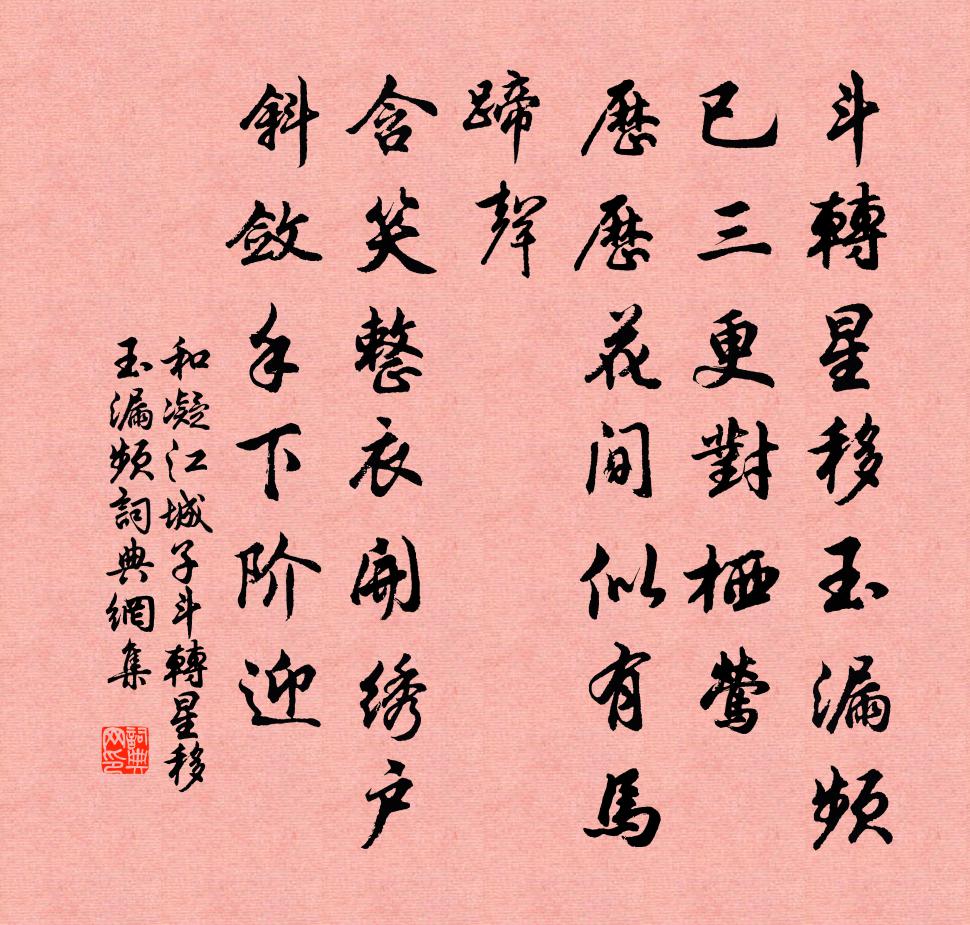 斗轉星移玉漏頻
已三更對栖鶯
歷歷花间似有馬
蹄聲
含笑整衣開绣户
斜斂手下阶迎
和凝江城子斗轉星移
玉漏頻詞典網集
詞典
网印